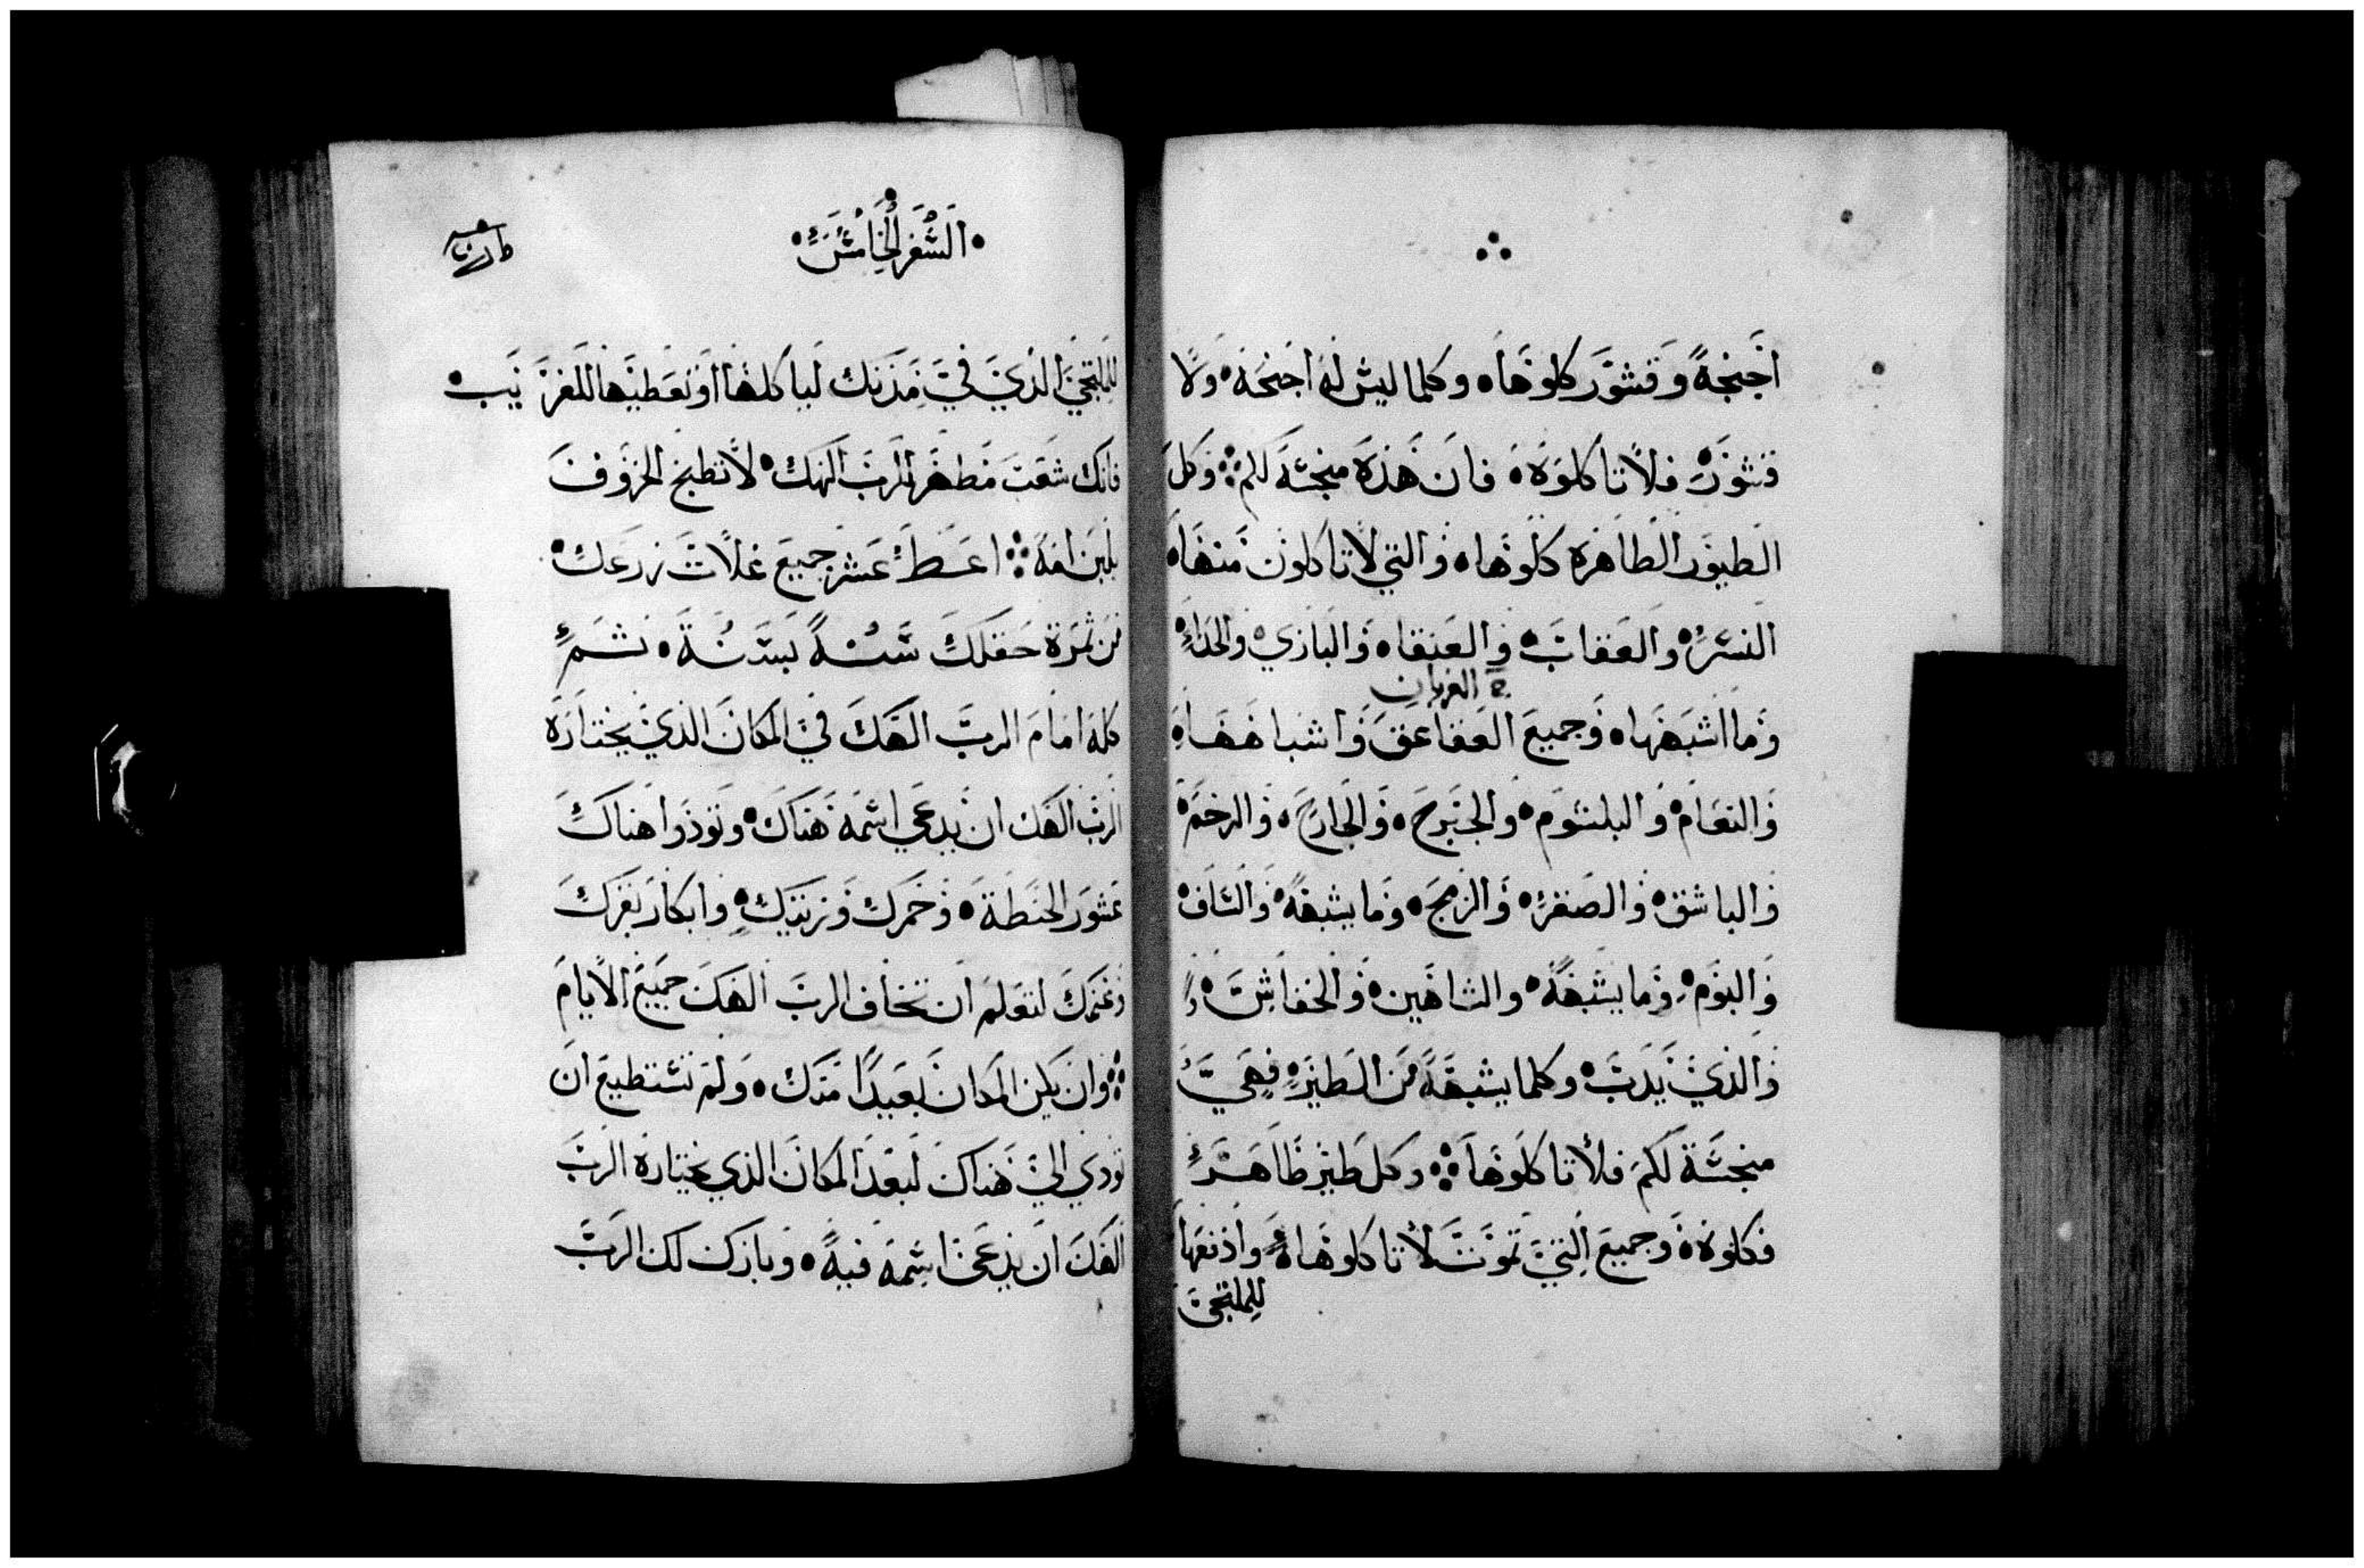 اجنحة وقشور كلوها وكلما ليش له اجنحة ولا
قشور فلا تاكلوه فان هذه منجسة لكم وكل
الطيور الطاهرة كلوها والتي لا تاكلون منها
النسر والعقاب والعنقا والبازي والحداة
ج الغربان
وما اشبهها وجميع العقاعق واشباهها
والنعام والبلشوم والجبرح والجارح والرخم
والباشق والصقر والزمج وما يشبهه والساف
والبوم وما يشبهه والشاهين والخفاش
والذي يدب وكلما يشبهه من الطير فهي
منجسة لكم فلا تاكلوها وكل طير طاهر
فكلوه وجميع التي تموت لا تاكلوها وادفعها
للملتجى
السفر الخامس
للملتجي الذي في مدنك لياكلها او تعطيها للغريب
فانك شعب مطهر للرب الهك لا تطبخ الخروف
بلبن امه اعط عشر جميع غلات زرعك
من ثمرة حقلك سنة بسنة ثم
كله امام الرب الهك في المكان الذي يختاره
الرب الهك ان يدعي اسمه هناك وتودوا هناك
عشور الحنطة وخمرك وزيتك وابكار بقرك
وغنمك لتعلم ان تخاف الرب الهك جميع الايام
وان يكن المكان بعيدا منك ولم تستطيع ان
تودي الي هناك لبعد المكان الذي يختاره الرب
الهك ان يدعى اسمه فيه وبارك لك الرب